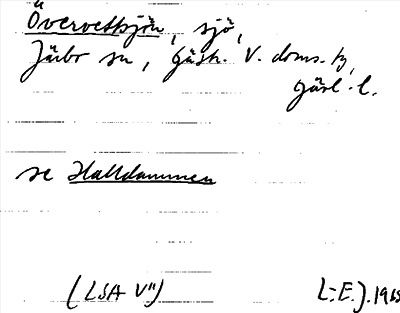 Övervettsjön, sjö,
Järbo sn, Gästr. V. doms. tg,
Gävl. l.
se Halldammen
(LSA V")
L-E.J. 1965